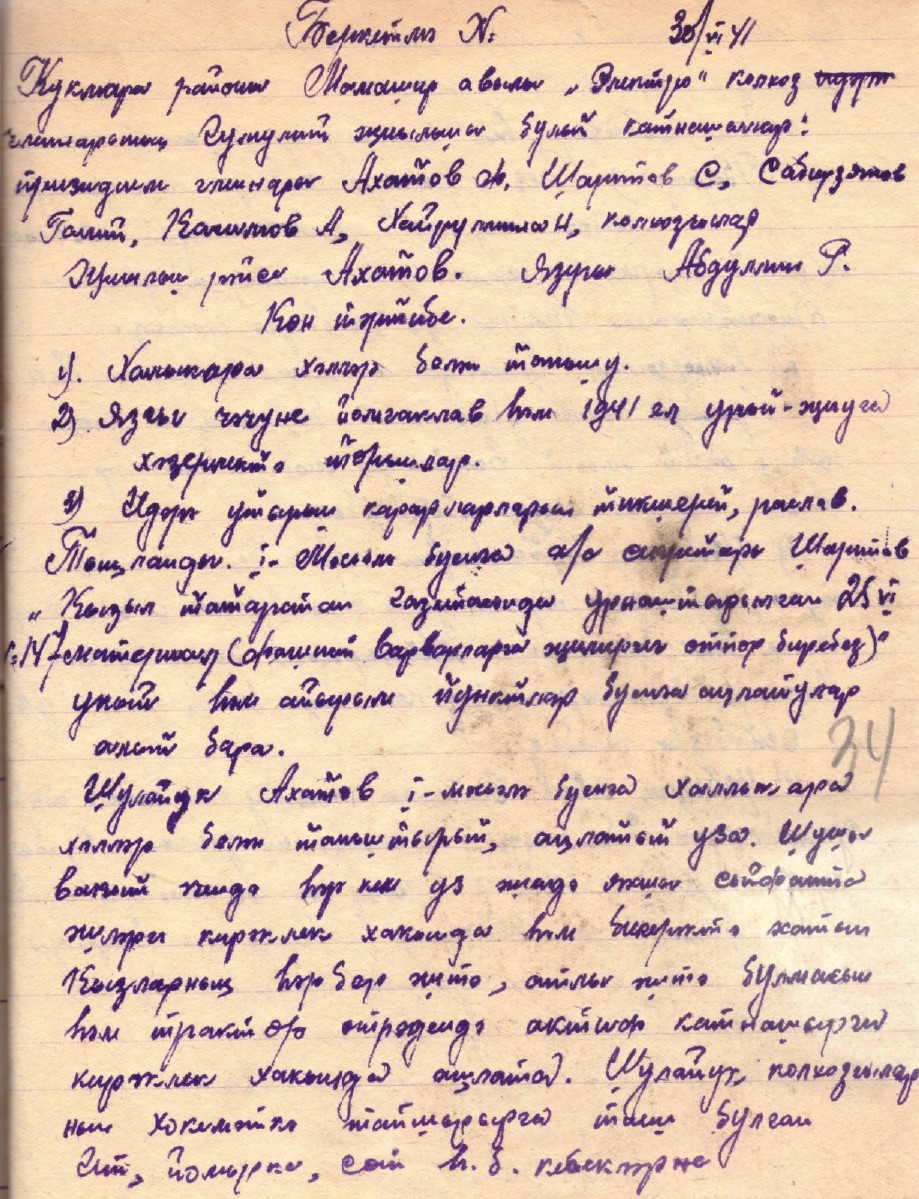 Беркетмә №: 30/VI 41
Кукмара районы Мамашир авылы „Электро“ колхоз
членнарының гумуми җыелышы булып катнашалар:
президиум членнары Ахатов Ф, Шарипов С, Сабирзянов
Галий, Касимов А, Хайруллина Н, колхозчылар
Җыелыш рәисе Ахатов. Язучы Абдуллин Р.
Көн тәртибе.
1). Халыкара хәлләр белән танышу.
2) Язгы чәчүне йомгаклав һәм 1941 ел урып-җиюга
хәзерлектә торышлар
3) Идарә утырыш карарларларын тикшереп, раслав.
Тыңланды. 1- Мәсьәлә буенча а/с секретаре Шарипов
„Кызыл татарстан газетасында урнаштырылган 25 VI
№147 материал (фашист варварларга җимергеч отпор бирәбез)“
укып һәм айырым пунктлар буенча аңлатулар
алып бара.
34
Шулайук Ахатов 1-мәсьәлә буенча халыкара
хәлләр белән таныштырып, аңлатып уза. Шушы
вакыт эчендә һәр кем үз эшендә яхшы сыйфатта
эшләргә кирәклек хакында һәм бигрәктә хатын
Кызларның һәрбер эштә, атлы эштә булмасын
һәм трактор отрядында актив катнашырга
кирәклек хакында аңлата. Шулайук, колхозчылар
ның хөкүмәткә тапшырырга тиеш булган
Ит, йомырка, сөт һ.б. кебекләрне